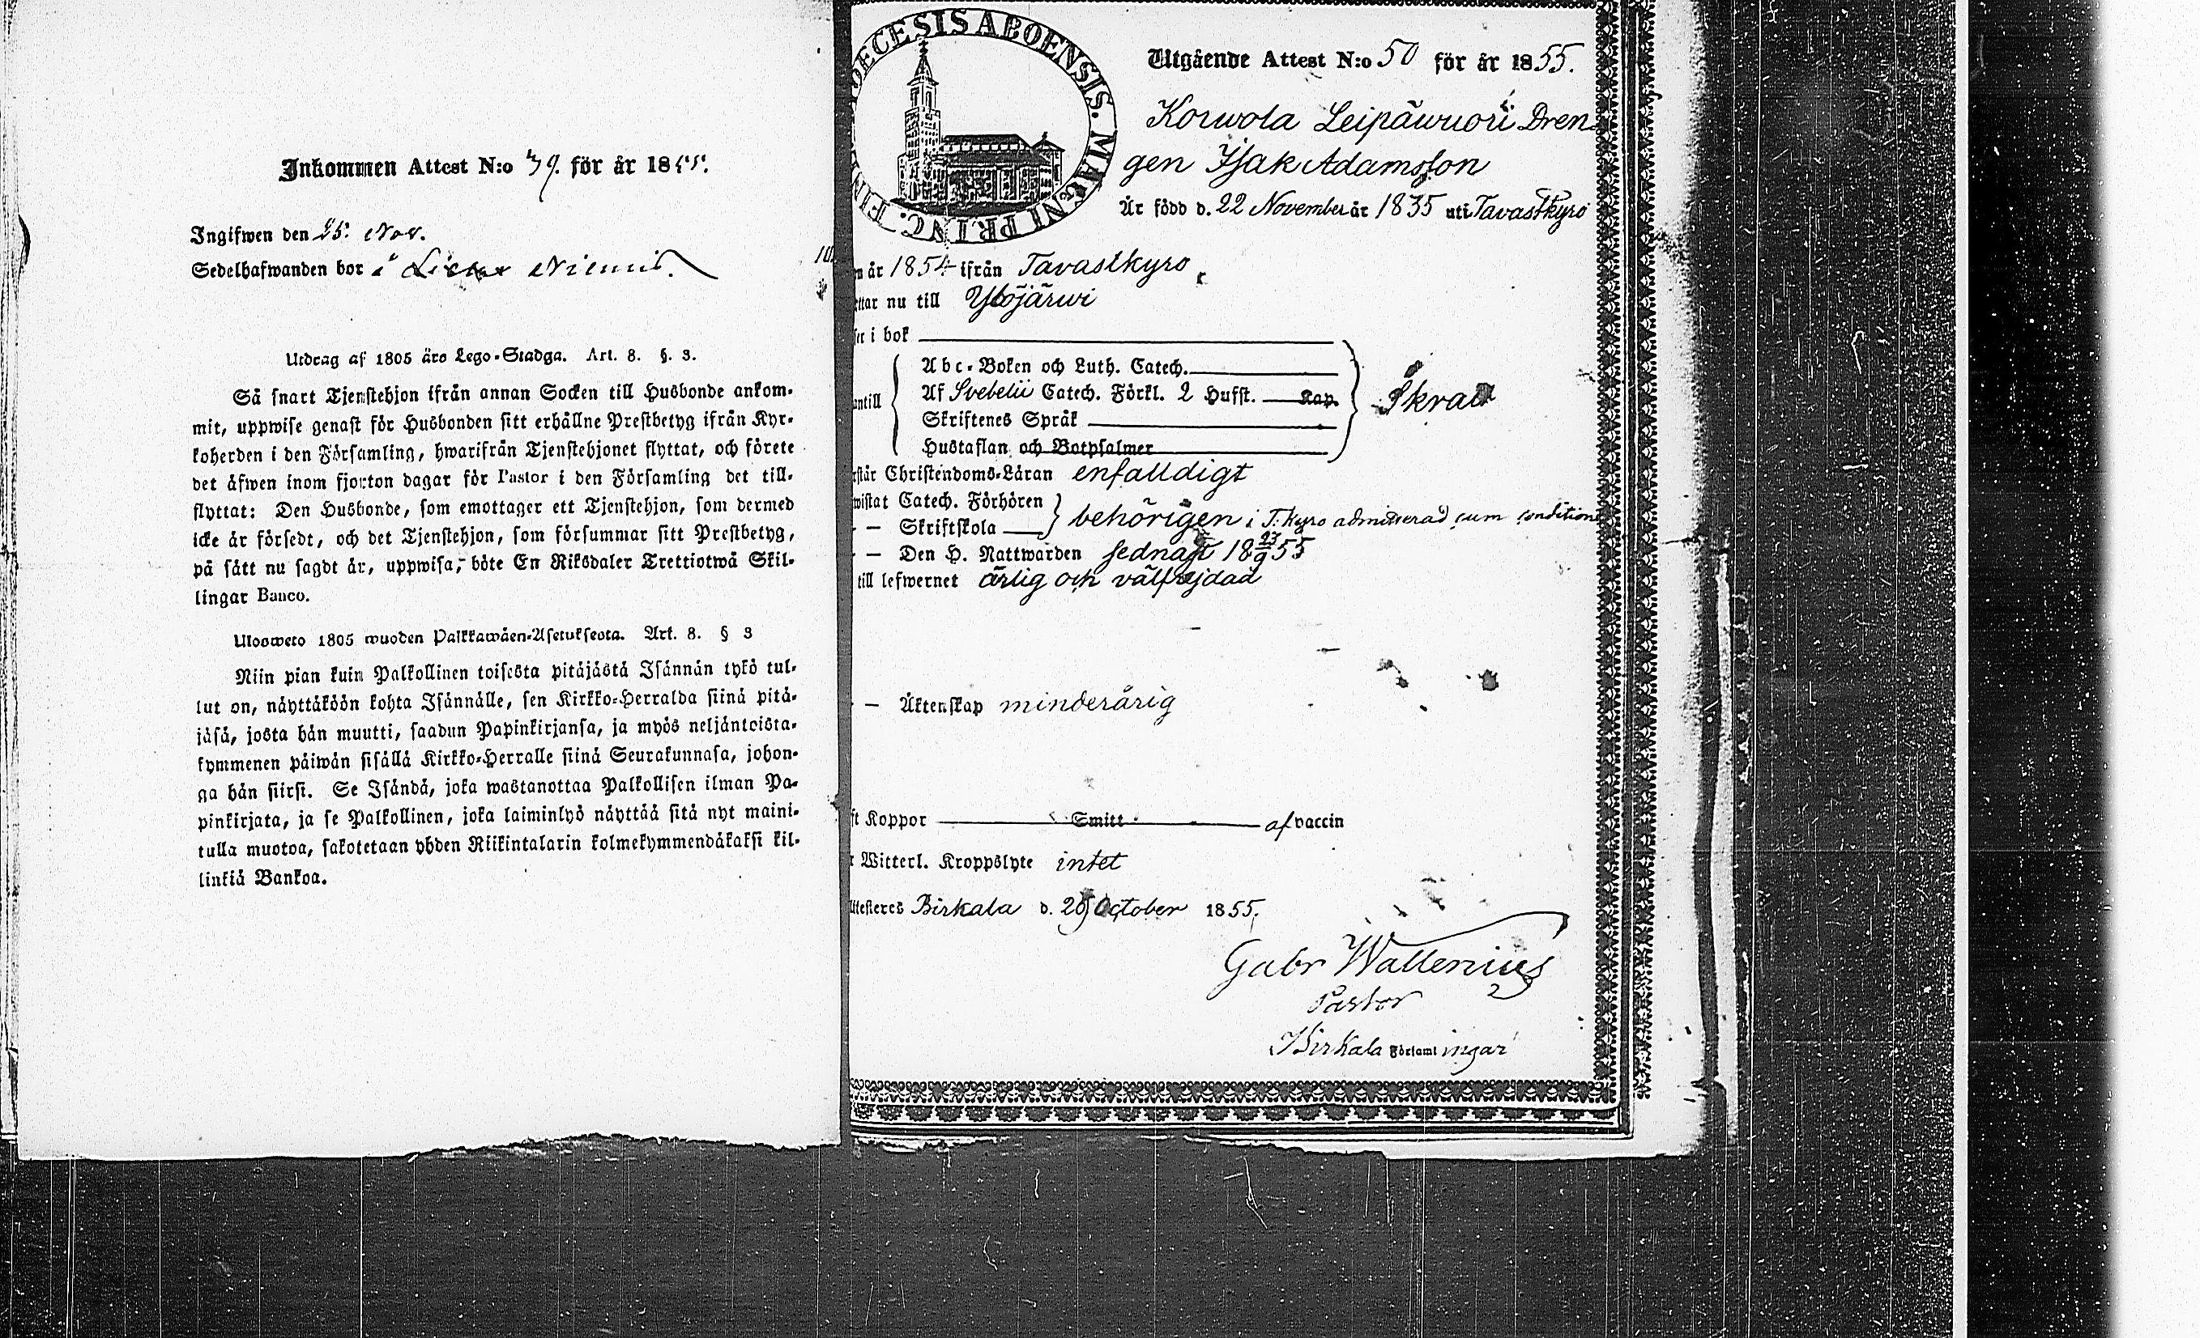 Inkommen Attest N:o 39. för år 1855.
Ingifwen den 25. Nov.
Sedelhafwanden bor i Niemis.
Utdrag af 1805 års Lego-Stadga. Art. 8. §. 3.
Så snart Tjenstehjon ifrån annan Socken till Husbonde ankom-
mit, uppwise genast för Husbonden sitt erhållne Prestbetyg ifrån Kyr-
koherden i den Församling, hwarifrån Tjenstehjonet flyttat, och förete
det äfwen inom fjorton dagar för Pastor i den Församling det till-
flyttat: Den Husbonde, som emottager ett Tjenstehjon, som dermed
icke är försedt, och det Tjenstehjon, som försummar sitt Prestbetyg,
på sätt nu sagdt är, uppwisa, böte En Riksdaler Trettiotwå Skil-
lingar Banco.
Ulosweto 1805 wuoden Palkkawäen-Asetuksesta. Art. 8. § 3
Niin pian kuin Palkollinen toisesta pitäjästä Isännän tykö tul-
lut on, näyttäköön kohta Isännälle, sen Kirkko-Herralda siinä pitä-
jäsä, josta hän muutti, saadun Papinkirjansa, ja myös neljäntoista-
kymmenen päiwän sisällä Kirkko-Herralle siinä Seurakunnasa, johon-
ga hän siirsi. Se Isändä, joka wastanottaa Palkollisen ilman Pa-
pinkirjata, ja se Palkollinen, joka laiminlyö näyttää sitä nyt maini-
tulla muotoa, sakotetaan yhden Riikintalarin kolmekymmendäkaksi kil-
linkiä Bankoa.
DECESIS ABOENSIS. MAGNI PRINC. FIN
Utgående Attest N:o 50 för år 1855.
Korwola Leipäwuori Dren-
gen Isak Adamsson
Är född d. 22 November år 1835 uti Tavastkyro
n år 1854 ifrån Tavastkyro
ttar nu till Ylöjärwi
ser i bok
Abc-Boken och Luth. Catech.
antill Af Svebelii Catech. Förkl. 2 Hufst. Kap. Skrad
Skriftenes Språk
Hustaflan och Botpsalmer
rstår Christendoms-Läran enfalldigt
wistat Catech. Förhören
— Skriftskola behörigen i T:kyro admitterad cum conditione
— Den H. Nattwarden sednast 18 23/9 55
till lefwernet ärlig och välfrejdad
— Äktenskap minderårig
ft Koppor Smitt af vaccin
r Witterl. Kroppslyte intet
Attesteres Birkala d. 29 October 1855.
Gabr Wallenius
Pastor
Birkala Församlingar